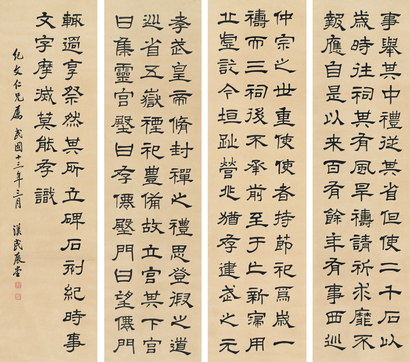 事舉其中禮從其省但使二千石以
歲時往祠其有風旱禱請祈求靡不
報應自是以來百有餘年有事西巡
仲宗之世重使使者持節祀焉歲一
禱而三祠後不承前至于亡新寖用
丘虛訖今垣趾營兆猶存建武之元
孝武皇帝脩封禪之禮思登徦之道
巡省五嶽禋祀豐備故立宮其下宮
曰集靈宮殿曰存僊殿門曰望僊門
輒過享祭然其所立碑石刻紀時事
文字摩滅莫能存識
紀文仁兄屬 民國十三年三月 漢民展堂